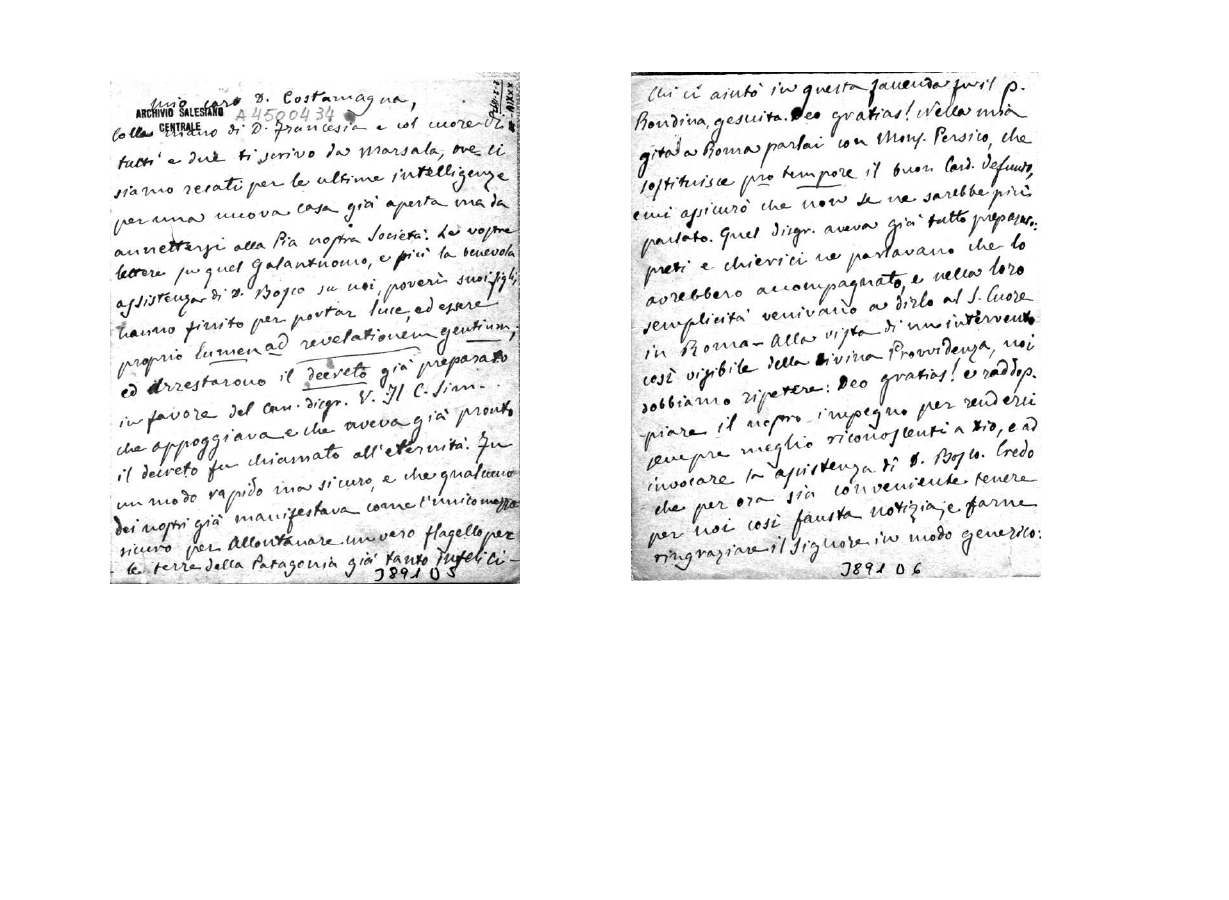 mio caro D. Costamagna,
ARCHIVIO SALESIANO
A4500434
CENTRALE
Colla mano di D. Francesia e col cuore di
tutti e due ti scrivo da Marsala, ove ci
siamo recati per le ultime intelligenze
per una nuova casa già aperta ma da
annettersi alla Pia nostra Società: Le vostre
lettere su quel Galantuomo, e più la benevola
assistenza di D. Bosco su noi, poveri suoi figli,
hanno finito per portar luce, ed essere
proprio lumen ad revelationem gentium,
ed Arrestarono il decreto già preparato
in favore del Can. disgr. V. Il C. Sim..
che appoggiava e che aveva già pronto
il decreto fu chiamato all'eternità. In
un modo rapido ma sicuro, e che qualcuno
dei nostri già manifestava come l'unico mezzo
sicuro per Allontanare un vero flagello per
le terre della Patagonia già tanto infelici -
J891 D 5
Chi ci aiutò in questa faccenda fu il p.
Rondina, gesuita. Deo gratias! Nella mia
gita a Roma parlai con Mons. Persico, che
sostituisce pro tempore il buon Card. defunto,
e mi assicurò che non se ne sarebbe più
parlato. Quel disgr. aveva già tutto preparato:
preti e chierici ne parlavano che lo
avrebbero accompagnato, e nella loro
semplicità venivano a dirlo al S. Cuore
in Roma - Alla vista di un intervento
così visibile della Divina Provvidenza, noi
dobbiamo ripetere: Deo gratias! e raddop.
piare il nostro impegno per renderci
sempre meglio riconoscenti a Dio, e ad
invocare la assistenza di D. Bosco. Credo
che per ora sia conveniente tenere
per noi così fausta notizia, e farne
ringraziare il Signore in modo generico:
J891 D 6